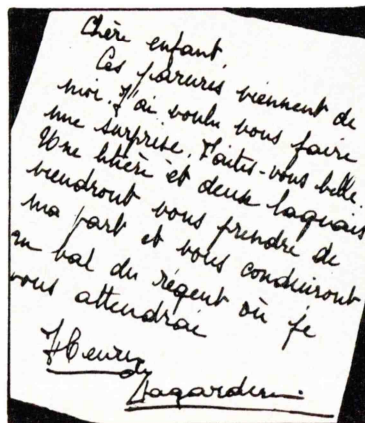 Chère enfant,
Ces parures viennent de
moi. J'ai voulu vous faire
une surprise. Faites-vous belle.
Une litière et deux laquais
viendront vous prendre de
ma part et vous conduiront
au bal du régent où je
vous attendrai
Henri de
Lagardère.